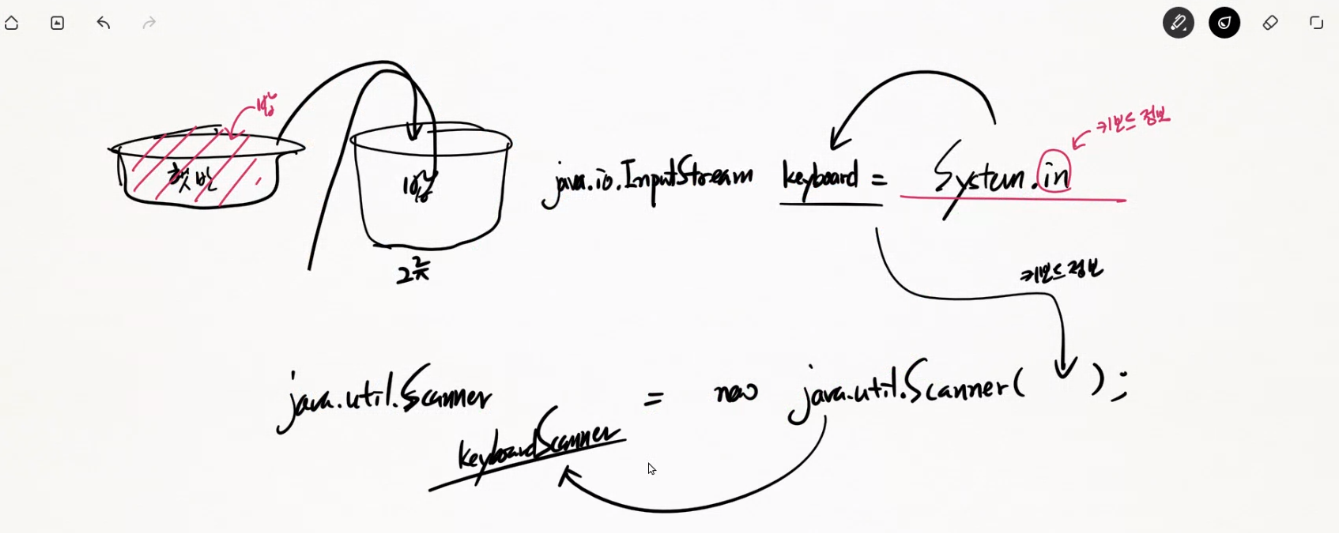 밥
햇반
밥
그릇
키보드 정보
java.io.InputStream keyboard = System.in
키보드 정보
java.util.Scanner = new java.util.Scanner( );
keyboardScanner